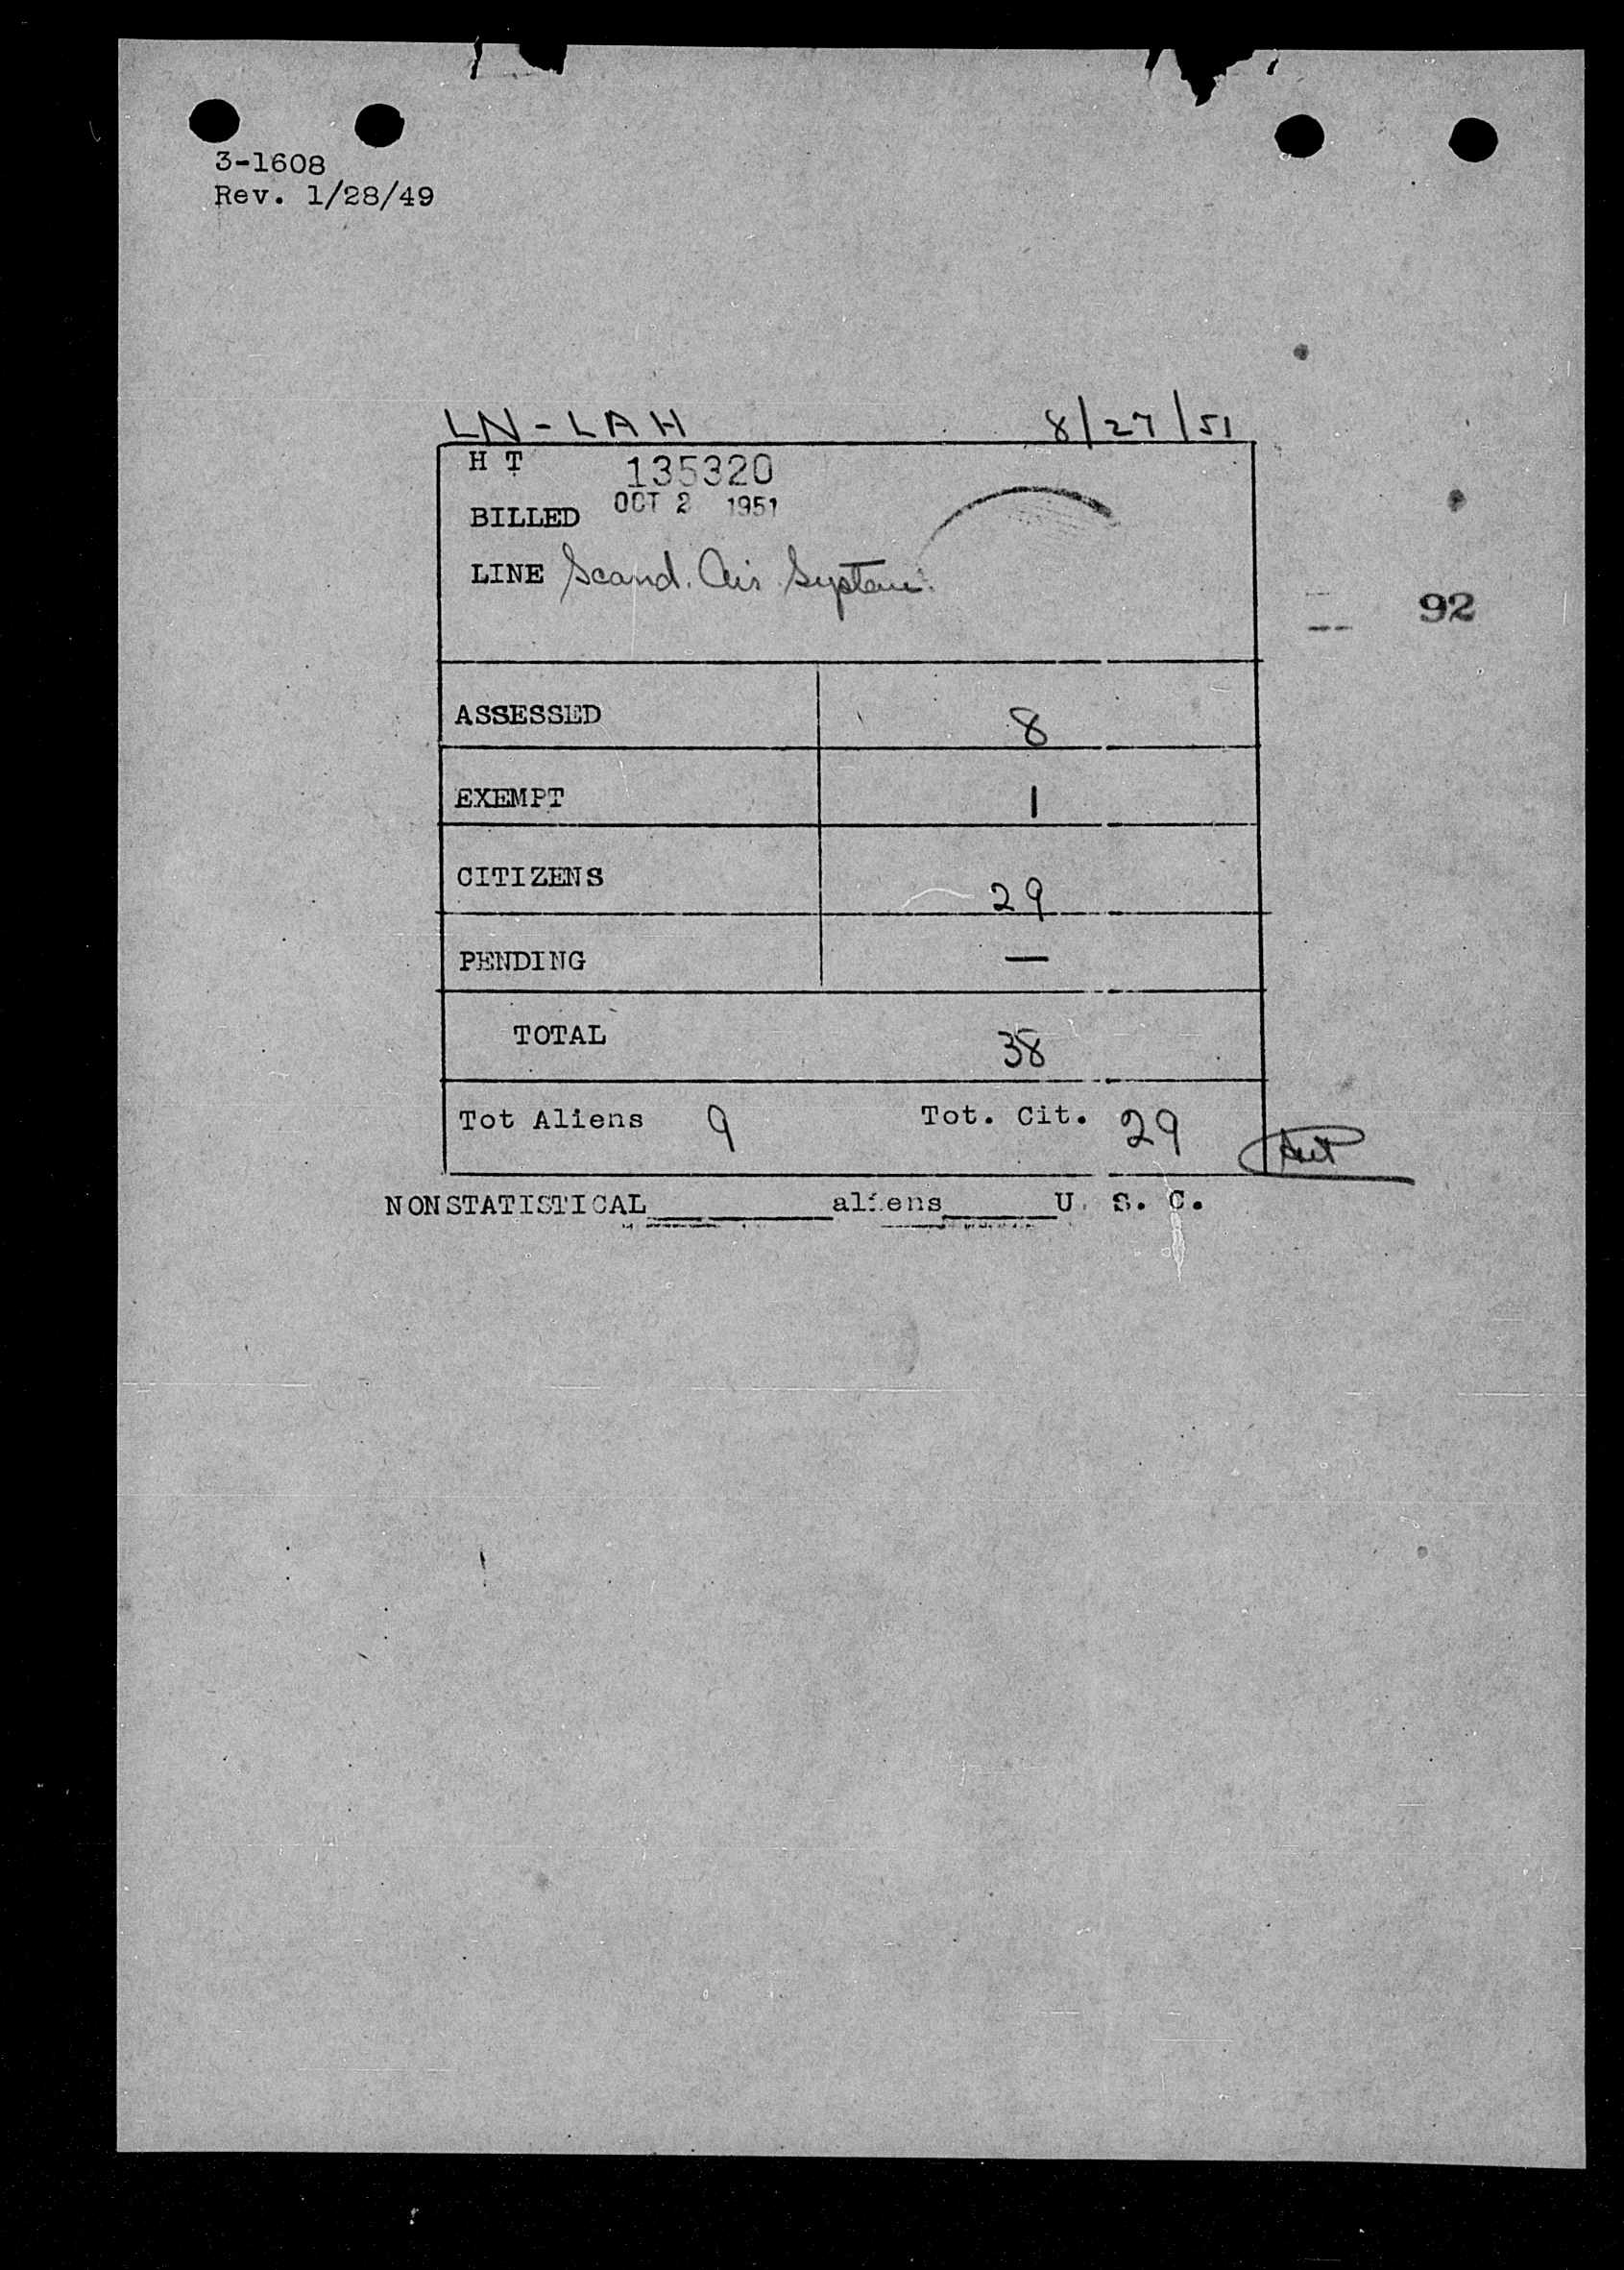 3-1608
Rev. 1/28/49
LN-LAH 8/27/51
H T 135320
BILLED OCT 2 1951
LINE Scand. Air System.
92
ASSESSED 8
EXEMPT 1
CITIZENS 29
PENDING —
TOTAL 38
Tot Aliens 9 Tot. Cit. 29
NONSTATISTICAL__________aliens______U. S. C.